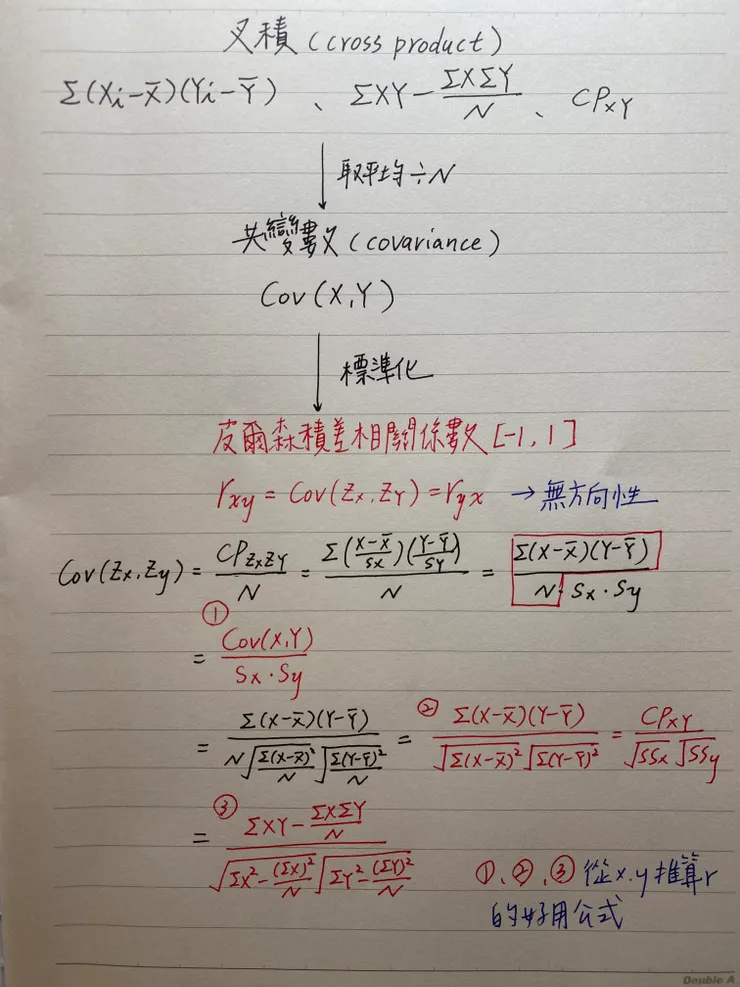 叉積(cross product)
Σ(Xi-X̄)(Yi-Ȳ)、ΣXY-ΣXΣY/N、CPxY
取平均÷N
共變數(covariance)
Cov(X,Y)
標準化
皮爾森積差相關係數[-1,1]
rxy=Cov(Zx,ZY)=ryx →無方向性
Cov(Zx,Zy)=CPZxZY/N=Σ((X-X̄)/Sx)((Y-Ȳ)/SY)/N=Σ(X-X̄)(Y-Ȳ)/(N·Sx·Sy)
①=Cov(X,Y)/(Sx·Sy)
=Σ(X-X̄)(Y-Ȳ)/(N√(Σ(X-X̄)²/N)√(Σ(Y-Ȳ)²/N))=②Σ(X-X̄)(Y-Ȳ)/(√Σ(X-X̄)²√Σ(Y-Ȳ)²)=CPXY/(√SSx√SSy)
③=(ΣXY-ΣXΣY/N)/(√(ΣX²-(ΣX)²/N)√(ΣY²-(ΣY)²/N))
①、②、③從x.y推算r
的好用公式
Double A